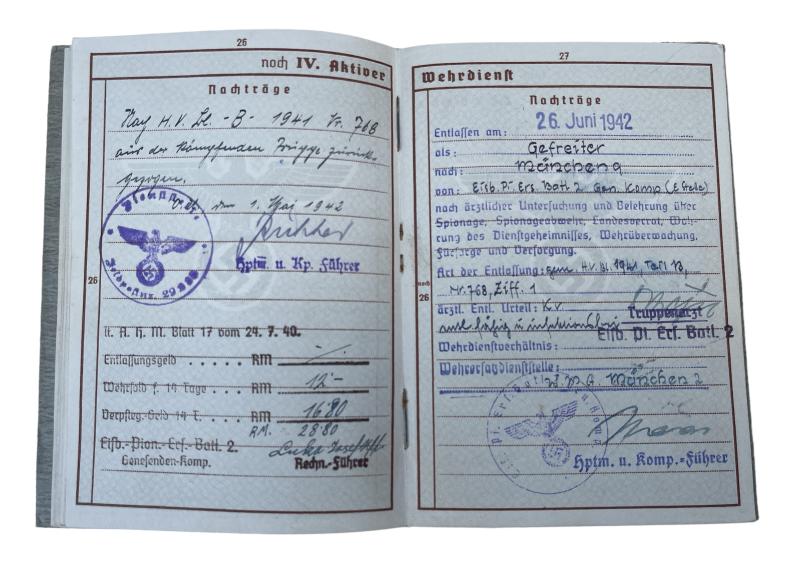 26
noch IV. Aktiver
Nachträge
H.V. Bl. -B- 1941 Nr. 768
aus der kämpfenden Truppe zurück-
gezogen.
den 1. Mai 1942
Hptm. u. Kp. Führer
26
lt. A. H. M. Blatt 17 vom 24. 7. 40.
Entlassungsgeld ..... RM -.-
Wehrsold f. 14 Tage .. RM 12.-
Verpfleg.-Geld 14 T. . RM 16 80
RM. 28 80
Eisb.-Pion.-Ers.-Batl. 2
Genesenden-Komp. Rechn.-Führer
27
Wehrdienst
Nachträge
Entlassen am: 26. Juni 1942
als: Gefreiter
nach: München 9
von: Eisb. Pi. Ers. Batl 2 Gen. Komp
nach ärztlicher Untersuchung und Belehrung über
Spionage, Spionageabwehr, Landesverrat, Wah-
rung des Dienstgeheimnisses, Wehrüberwachung,
Fürsorge und Versorgung.
Art der Entlassung: gem. H.V.Bl. 1941, Teil B,
noch
26
Nr. 768, Ziff. 1
ärztl. Entl. Urteil: K.v.
Truppenarzt
Eisb. Pi. Ers. Batl. 2
Wehrdienstverhältnis:
Wehrersatzdienststelle:
W.M.A. München 2
Hptm. u. Komp.-Führer